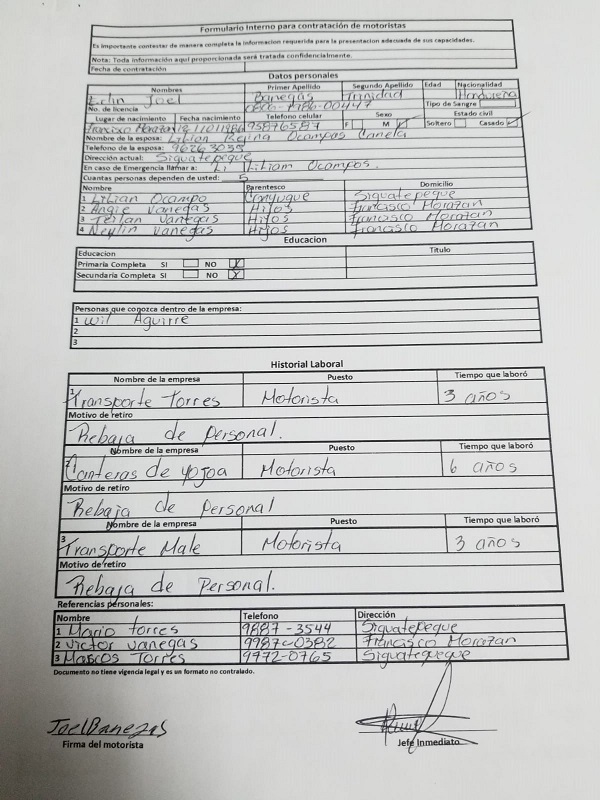 Formulario Interno para contratación de motoristas
Es importante contestar de manera completa la informacion requerida para la presentacion adecuada de sus capacidades.
Nota: Toda información aquí proporcionada será tratada confidencialmente.
Fecha de contratación
Datos personales
Nombres Primer Apellido Segundo Apellido Edad Nacionalidad
Erlin Joel Banegas Trinidad Hondureña
No. de licencia 0806-1986-00447 Tipo de Sangre
Lugar de nacimiento Fecha nacimiento Telefono celular Sexo Estado civil
Francisco Morazan 95876587 F M Soltero Casado
Nombre de la esposa: Lilian Reina Ocampos Canela
Telefono de la esposa: 96263035
Dirección actual: Siguatepeque
En caso de Emergencia llamar a: Liliam Ocampos.
Cuantas personas dependen de usted: 5
Nombre Parentesco Domicilio
1 Lilian Ocampo Conyugue Siguatepeque
2 Angie Vanegas Hijos Francisco Morazan
3 Vanegas Hijos Francisco Morazan
4 Neylin Vanegas Hijos Francisco Morazan
Educacion
Educacion Titulo
Primaria Completa SI NO X
Secundaria Completa SI NO X
Personas que conozca dentro de la empresa:
1 Wil Aguirre
2
3
Historial Laboral
Nombre de la empresa Puesto Tiempo que laboró
1 Transporte Torres Motorista 3 años
Motivo de retiro
Rebaja de Personal.
Nombre de la empresa Puesto Tiempo que laboró
2 Canteras de yojoa Motorista 6 años
Motivo de retiro
Rebaja de Personal
Nombre de la empresa Puesto Tiempo que laboró
3 Transporte Male Motorista 3 años
Motivo de retiro
Rebaja de Personal.
Referencias personales:
Nombre Telefono Dirección
1 Mario torres 9887-3544 Siguatepeque
2 Victor vanegas 9987-0382 Francisco Morazan
3 Marcos Torres 9772-0765 Siguatepeque
Documento no tiene vigencia legal y es un formato no contralado.
Joel Banegas
Firma del motorista Jefe Inmediato